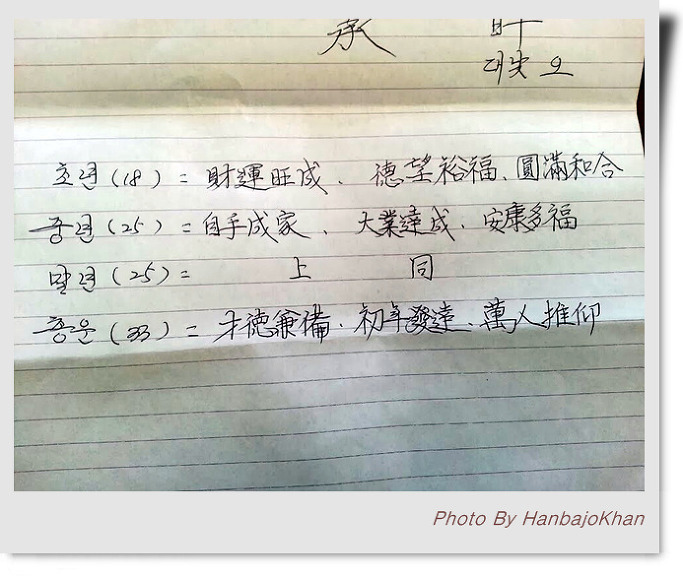 承 旿
대낮 오
초년 (18) = 財運旺成. 德望裕福. 圓滿和合
중년 (25) = 自手成家. 大業達成. 安康多福
말년 (25) = 上 同
총운 (33) = 才德兼備. 初年發達. 萬人推仰
Photo By HanbajoKhan